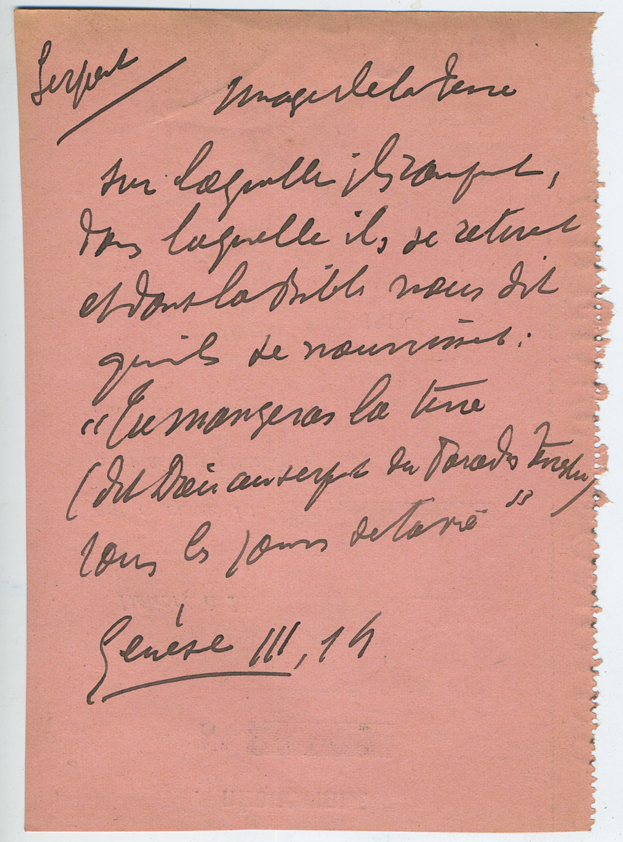 Serpent
Image de la Terre
sur laquelle ils rampent,
dans laquelle ils se retirent
et dont la Bible nous dit
qu'ils se nourrissent :
"Tu mangeras la terre
(dit Dieu au serpent du Paradis Terrestre)
tous les jours de ta vie"
Genèse III, 14